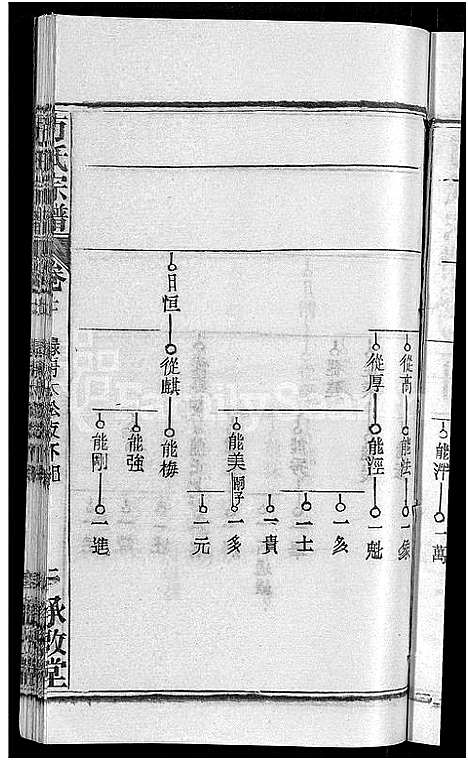 能洋 一萬
從高 能法 一象
從厚 能涇 一魁
一多
一士
一貴
能美 嗣子 一多
一元
日恒 從麒 能梅
能強
能剛 一進
方氏宗譜
卷
承啟堂